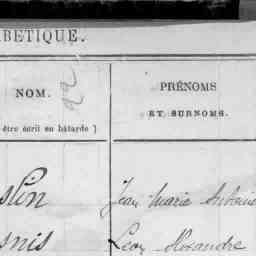 BETIQUE.
NOM.
être écrit en bâtarde ]
22
PRÉNOMS
ET SURNOMS.
slin Jean Marie Antoine
snis Léon Alexandre